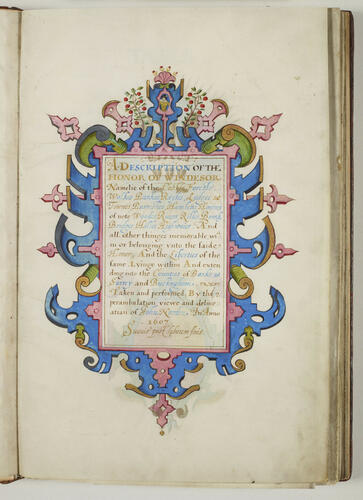 A DESCRIPTION OF THE
HONOR OF WINDESOR
Namelie of the
Walkes Parkes Rayles Lodges
Townes Parrishes Hamlets Howses
of note Woodes Rivers Rilles
Bridges Hilles And
all other thinges memorable wth
in or belonging vnto the saide
Honor, And the Liberties of the
same Lyinge within And exten
ding into the Counties of Barke
Surrey and Buckingham
Taken and performed, By the
perambulation, viewe and deline
ation of John Norden In Anno
1607